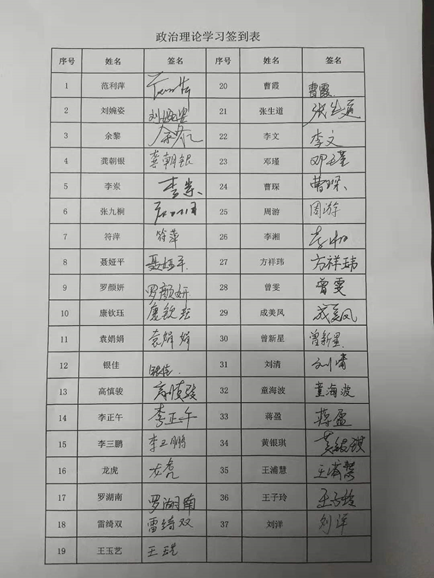 政治理论学习签到表
序号 姓名 签名 序号 姓名 签名
1 范利萍 20 曹霞 曹霞
2 刘婉姿 刘婉姿 21 张生道 张生道
3 余黎 余黎 22 李文 李文
4 龚朝银 龚朝银 23 邓瑾 邓瑾
5 李索 24 曹琛 曹琛
6 张九桐 25 周游 周游
7 符萍 符萍 26 李湘 李湘
8 聂娅平 聂娅平 27 方祥玮 方祥玮
9 罗颜妍 罗颜妍 28 曾雯 曾雯
10 唐钦珏 唐钦珏 29 成美凤 成美凤
11 袁娟娟 袁娟娟 30 曾新星 曾新星
12 银佳 银佳 31 刘清 刘清
13 高慎骏 高慎骏 32 童海波 童海波
14 李正午 李正午 33 蒋盈 蒋盈
15 李三鹏 李三鹏 34 黄银琪 黄银琪
16 龙虎 龙虎 35 王浦慧 王浦慧
17 罗湖南 罗湖南 36 王子玲 王子玲
18 雷绮双 雷绮双 37 刘洋 刘洋
19 王玉艺